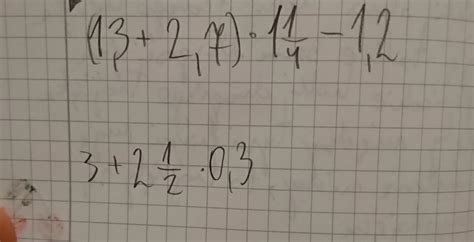 (1,3 + 2,7) · 1 1/4 − 1,2
3 + 2 1/2 · 0,3